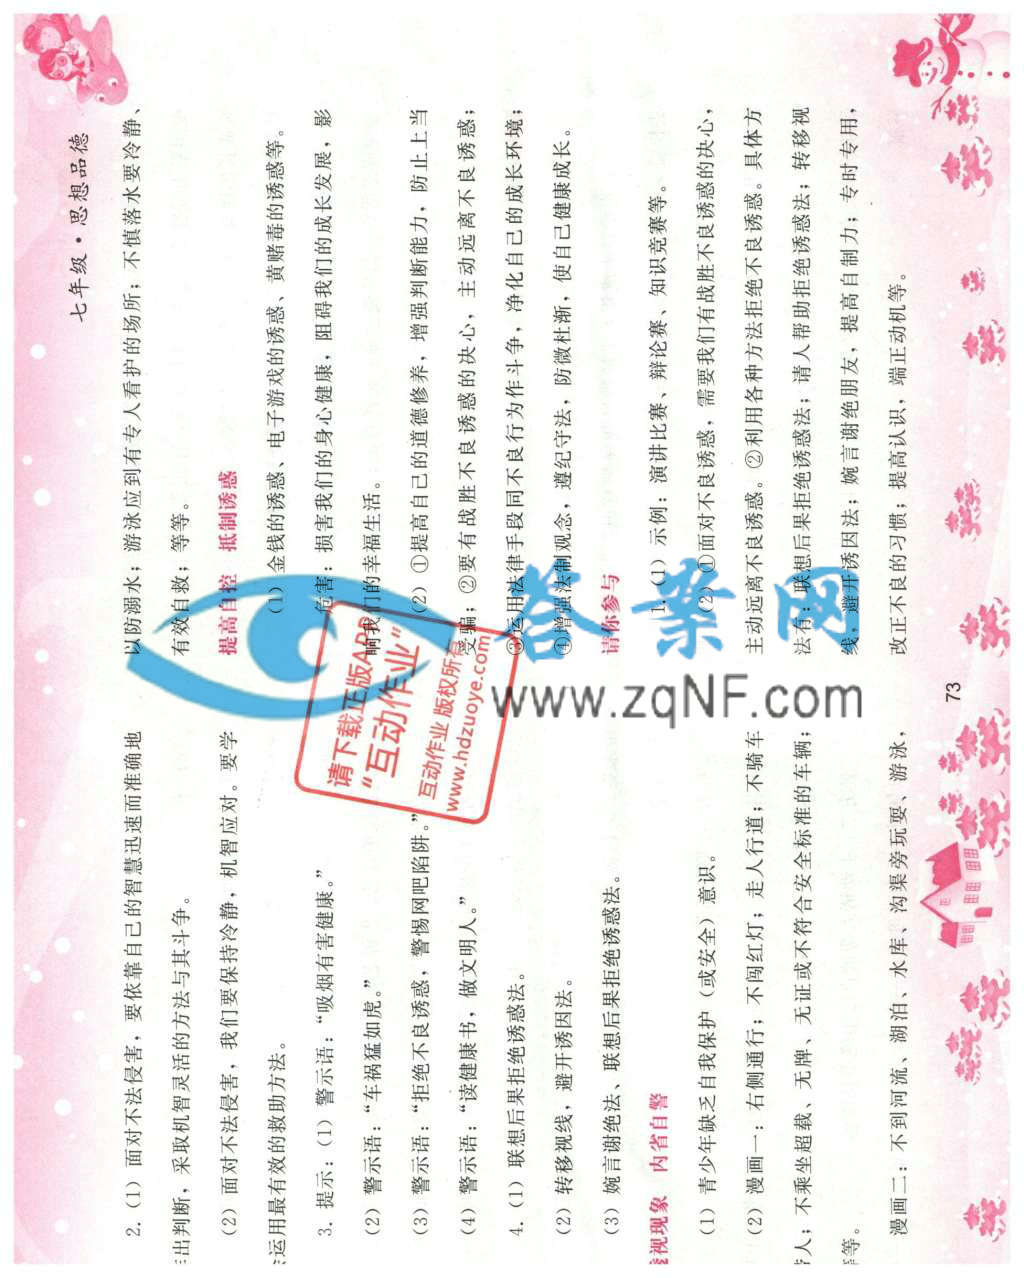 七年级·思想品德
2. (1) 面对不法侵害，要依靠自己的智慧迅速而准确地
出判断，采取机智灵活的方法与其斗争。
(2) 面对不法侵害，我们要保持冷静，机智应对。要学
运用最有效的救助方法。
3. 提示：(1) 警示语：“吸烟有害健康。”
(2) 警示语：“车祸猛如虎。”
(3) 警示语：“拒绝不良诱惑，警惕网吧陷阱。”
(4) 警示语：“读健康书，做文明人。”
4. (1) 联想后果拒绝诱惑法。
(2) 转移视线，避开诱因法。
(3) 婉言谢绝法、联想后果拒绝诱惑法。
视现象 内省自警
(1) 青少年缺乏自我保护（或安全）意识。
(2) 漫画一：右侧通行；不闯红灯；走人行道；不骑车
人；不乘坐超载、无牌、无证或不符合安全标准的车辆；
等。
漫画二：不到河流、湖泊、水库、沟渠旁玩耍、游泳，
以防溺水；游泳应到有专人看护的场所；不慎落水要冷静、
有效自救；等等。
提高自控 抵制诱惑
(1) 金钱的诱惑、电子游戏的诱惑、黄赌毒的诱惑等。
危害：损害我们的身心健康，阻碍我们的成长发展，影
响我们的幸福生活。
(2) ①提高自己的道德修养，增强判断能力，防止上当
受骗；②要有战胜不良诱惑的决心，主动远离不良诱惑；
③运用法律手段同不良行为作斗争，净化自己的成长环境；
④增强法制观念，遵纪守法，防微杜渐，使自己健康成长。
请你参与
1. (1) 示例：演讲比赛、辩论赛、知识竞赛等。
(2) ①面对不良诱惑，需要我们有战胜不良诱惑的决心，
主动远离不良诱惑。②利用各种方法拒绝不良诱惑。具体方
法有：联想后果拒绝诱惑法；请人帮助拒绝诱惑法；转移视
线，避开诱因法；婉言谢绝朋友，提高自制力；专时专用，
改正不良的习惯；提高认识，端正动机等。
73
请下载正版APP
“互动作业”
互动作业 版权所有
www.hdzuoye.com
答案网
www.zqNF.com